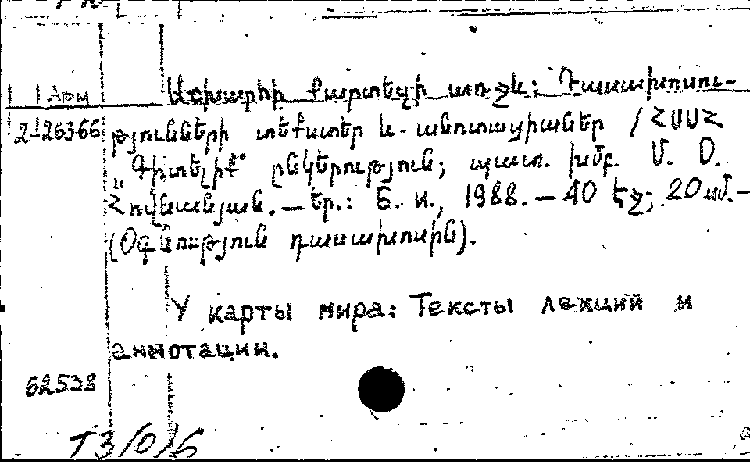 Арм
Աշխարհի քարտեզի առջև: Դասախոսու-
2-26366 թյունների տեքստեր և անոտացիաներ / ՀՍՍՀ
"Գիտելիք" ընկերություն; պատ. խմբ. Մ. Օ.
Հովնանյան. — Եր.: Б. и., 1988. — 40 էջ; 20 սմ. —
(Օգնություն դասախոսին).
У карты мира: Тексты лекций и
аннотации.
62538
T3/0/6